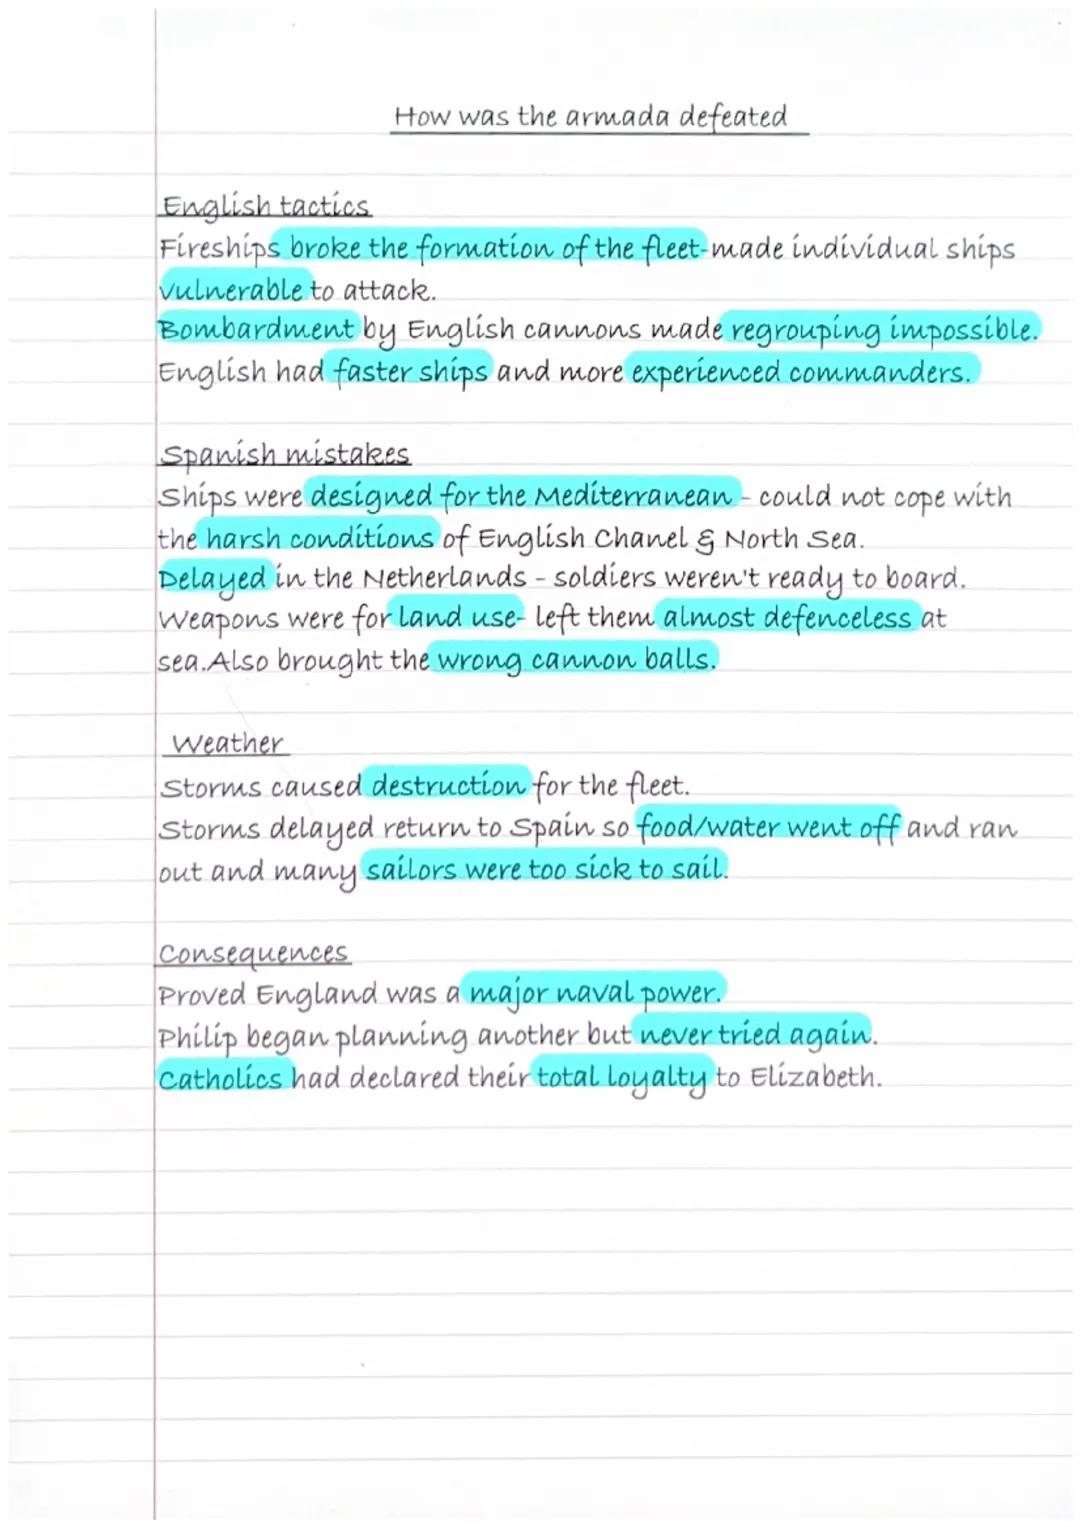 How was the armada defeated
English tactics
Fireships broke the formation of the fleet-made individual ships
vulnerable to attack.
Bombardment by English cannons made regrouping impossible.
English had faster ships and more experienced commanders.
Spanish mistakes
Ships were designed for the Mediterranean - could not cope with
the harsh conditions of English Chanel & North Sea.
Delayed in the Netherlands - soldiers weren't ready to board.
Weapons were for land use- left them almost defenceless at
sea.Also brought the wrong cannon balls.
Weather
Storms caused destruction for the fleet.
Storms delayed return to Spain so food/water went off and ran
out and many sailors were too sick to sail.
Consequences
Proved England was a major naval power.
Philip began planning another but never tried again.
Catholics had declared their total loyalty to Elizabeth.